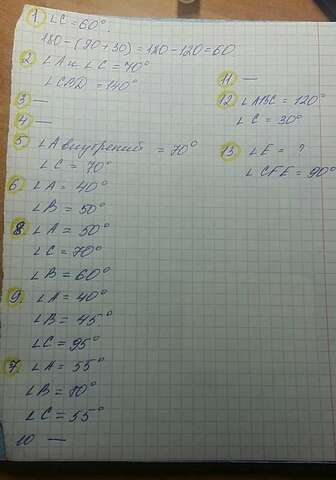 1 ∠C = 60°.
180 - (90+30) = 180 - 120 = 60
2 ∠A и ∠C = 70°
∠CBD = 140°
3 —
4 —
5 ∠A внутрений = 70°
∠C = 70°
6 ∠A = 40°
∠B = 50°
8. ∠A = 50°
∠C = 70°
∠B = 60°
9. ∠A = 40°
∠B = 45°
∠C = 95°
7. ∠A = 55°
∠B = 70°
∠C = 55°
10 —
11 —
12 ∠ABC = 120°
∠C = 30°
13 ∠E = ?
∠CFE = 90°